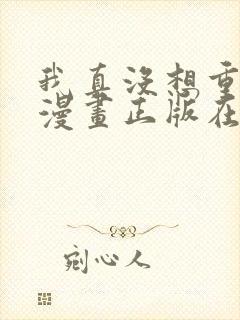 我真没想重
漫畫正版在
剜心人